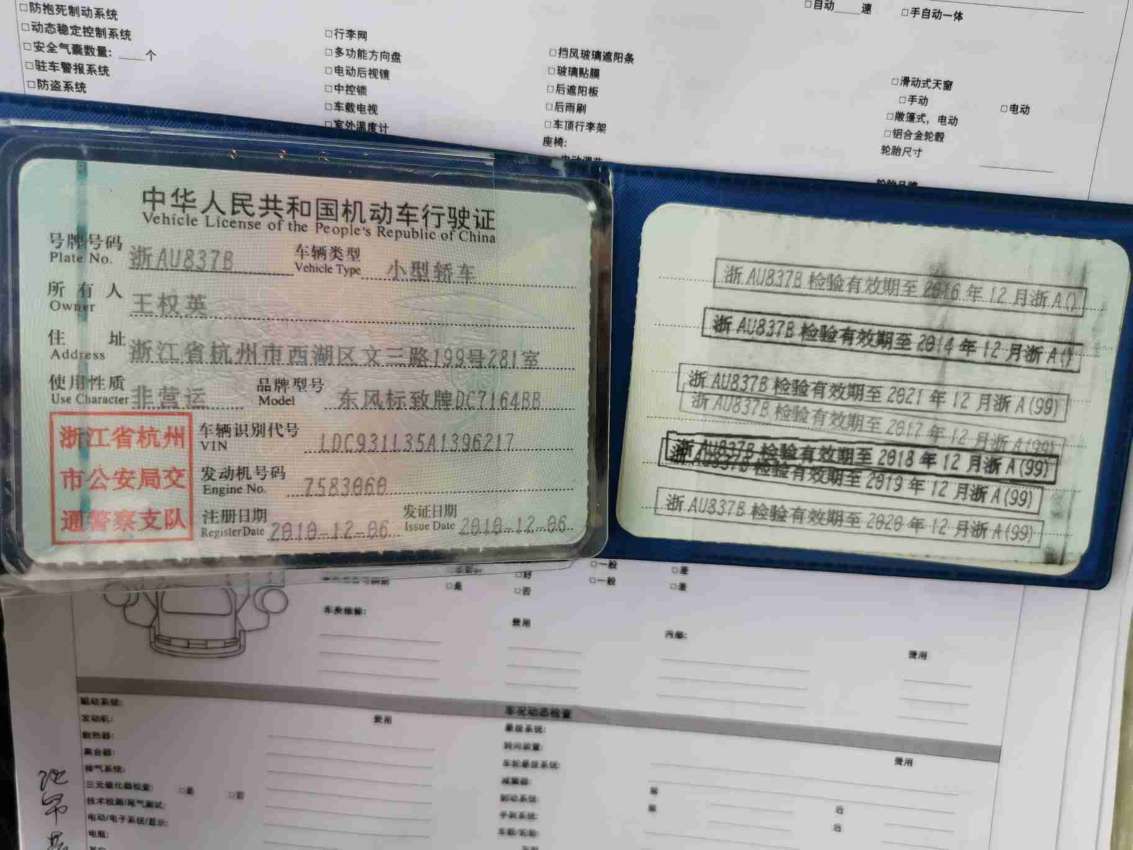 □防抱死制动系统
□动态稳定控制系统
□安全气囊数量: ____个
□驻车警报系统
□防盗系统
□行李网
□多功能方向盘
□电动后视镜
□中控锁
□车载电视
□室外温度计
□挡风玻璃遮阳条
□玻璃贴膜
□后遮阳板
□后雨刷
□车顶行李架
座椅:
□自动____速 □手自动一体
□滑动式天窗
□手动 □电动
□敞篷式,电动
□铝合金轮毂
轮胎尺寸
中华人民共和国机动车行驶证
Vehicle License of the People's Republic of China
号牌号码 浙AU837B 车辆类型 小型轿车
Plate No. Vehicle Type
所有人 王权英
Owner
住址 浙江省杭州市西湖区文三路199号281室
Address
使用性质 非营运 品牌型号 东风标致牌DC7164BB
Use Character Model
浙江省杭州
市公安局交
通警察支队
车辆识别代号 LDC931L35A1396217
VIN
发动机号码 7583060
Engine No.
注册日期 2010-12-06 发证日期 2010-12-06
Register Date Issue Date
浙AU837B检验有效期至2016年12月浙A()
浙AU837B检验有效期至2014年12月浙A()
浙AU837B检验有效期至2021年12月浙A(99)
浙AU837B检验有效期至2017年12月浙A(99)
浙AU837B检验有效期至2018年12月浙A(99)
浙AU837B检验有效期至2019年12月浙A(99)
浙AU837B检验有效期至2020年12月浙A(99)
□是 □好 □一般 □差
□否 □一般 □差
费用
费用
车况动态检查
驱动系统:
发动机: 费用
散热器:
离合器:
排气系统:
三元催化器检查: □是 □否
技术检测/尾气测试:
电动/电子系统/显示:
电瓶:
悬挂系统:
转向装置:
车轮悬挂系统: 费用
减震器:
制动系统:
手刹系统:
车毂/轮胎: